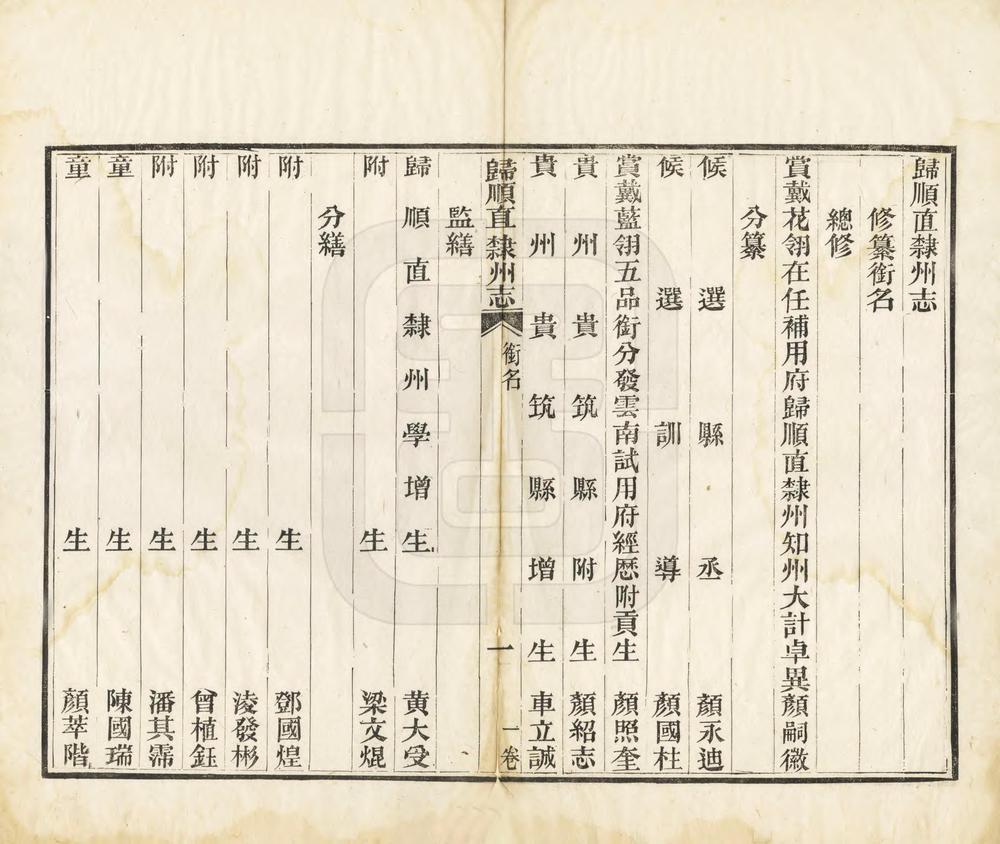 歸順直隸州志
修纂銜名
總修
賞戴花翎在任補用府歸順直隸州知州大計卓異顏嗣徽
分纂
候選縣丞顏永迪
候選訓導顏國杜
賞戴藍翎五品銜分發雲南試用府經歷附貢生顏照奎
貴州貴筑縣附生顏紹志
貴州貴筑縣增生車立誠
歸順直隸州志 銜名 一 一卷
監繕
歸順直隸州學增生黃大受
附生梁文焜
分繕
附生鄧國煌
附生淩發彬
附生曾植鈺
附生潘其霈
童生陳國瑞
童生顏萃階